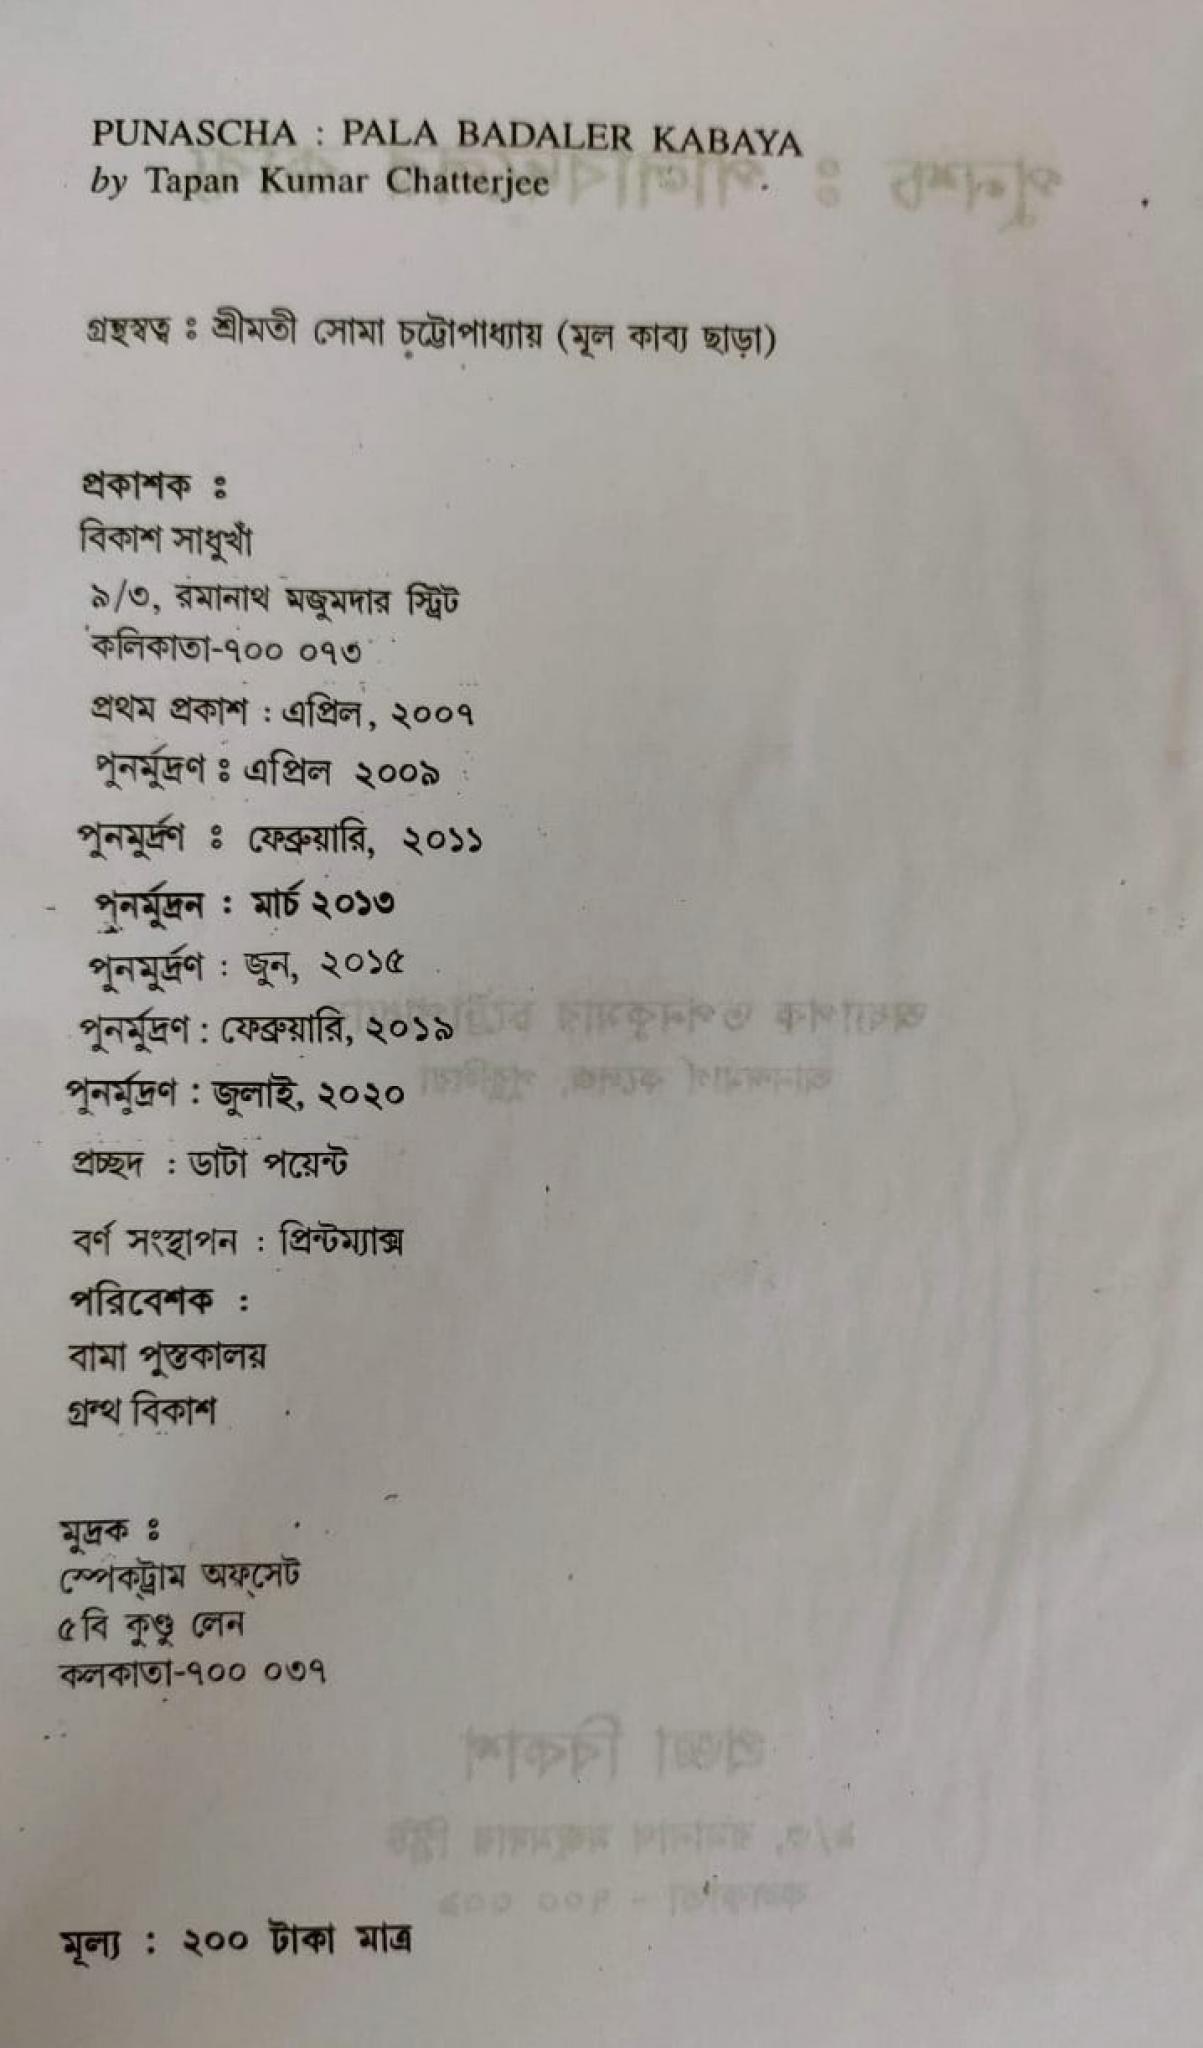 PUNASCHA : PALA BADALER KABAYA
by Tapan Kumar Chatterjee
গ্রন্থস্বত্ব ঃ শ্রীমতী সোমা চট্টোপাধ্যায় (মূল কাব্য ছাড়া)
প্রকাশক ঃ
বিকাশ সাধুখাঁ
৯/৩, রমানাথ মজুমদার স্ট্রিট
কলিকাতা-৭০০ ০৭৩
প্রথম প্রকাশ : এপ্রিল, ২০০৭
পুনর্মুদ্রণ ঃ এপ্রিল ২০০৯
পুনমুর্দ্রণ ঃ ফেব্রুয়ারি, ২০১১
পুনর্মুদ্রন : মার্চ ২০১৩
পুনমুর্দ্রণ : জুন, ২০১৫
পুনর্মুদ্রণ : ফেব্রুয়ারি, ২০১৯
পুনর্মুদ্রণ : জুলাই, ২০২০
প্রচ্ছদ : ডাটা পয়েন্ট
বর্ণ সংস্থাপন : প্রিন্টম্যাক্স
পরিবেশক :
বামা পুস্তকালয়
গ্রন্থ বিকাশ
মুদ্রক ঃ
স্পেক্‌ট্রাম অফ্‌সেট
৫বি কুণ্ডু লেন
কলকাতা-৭০০ ০৩৭
মূল্য : ২০০ টাকা মাত্র